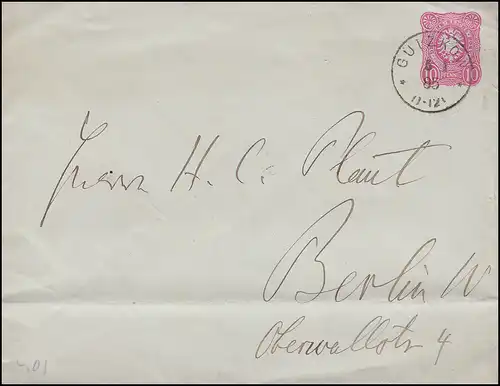 GÜTZKOW
85
11-12V
10 10
Herrn H. C. Plaut
Berlin W
Oberwallstr 4